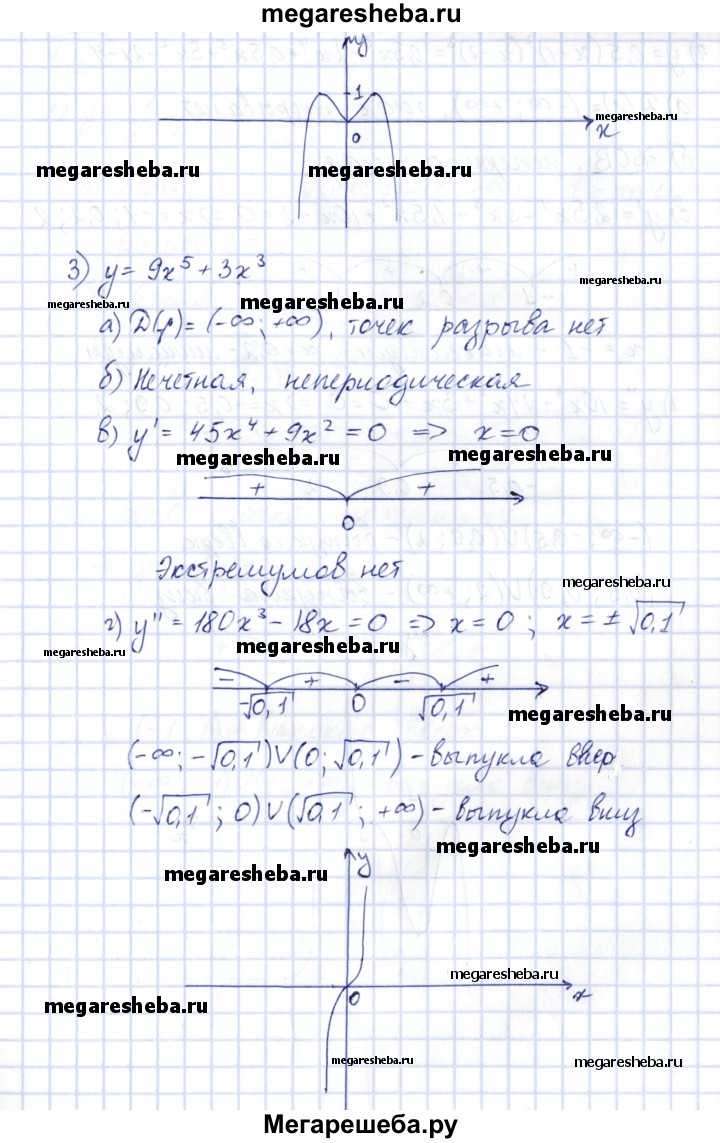 megaresheba.ru
y
1
megaresheba.ru
0
x
megaresheba.ru megaresheba.ru
3) y = 9x⁵ + 3x³
megaresheba.ru megaresheba.ru
а) D(f) = (-∞; +∞), точек разрыва нет
б) Нечетная, непериодическая
в) y' = 45x⁴ + 9x² = 0 => x = 0
megaresheba.ru megaresheba.ru
+ +
0
Экстремумов нет
megaresheba.ru
г) y'' = 180x³ - 18x = 0 => x = 0 ; x = ± √0,1
megaresheba.ru megaresheba.ru
- + - +
-√0,1 0 √0,1
megaresheba.ru
(-∞; -√0,1) ∪ (0; √0,1) - выпукла ввер
(-√0,1; 0) ∪ (√0,1; +∞) - выпукла вниз
megaresheba.ru
y
megaresheba.ru
megaresheba.ru
0 x
megaresheba.ru
megaresheba.ru megaresheba.ru
Мегарешеба.ру